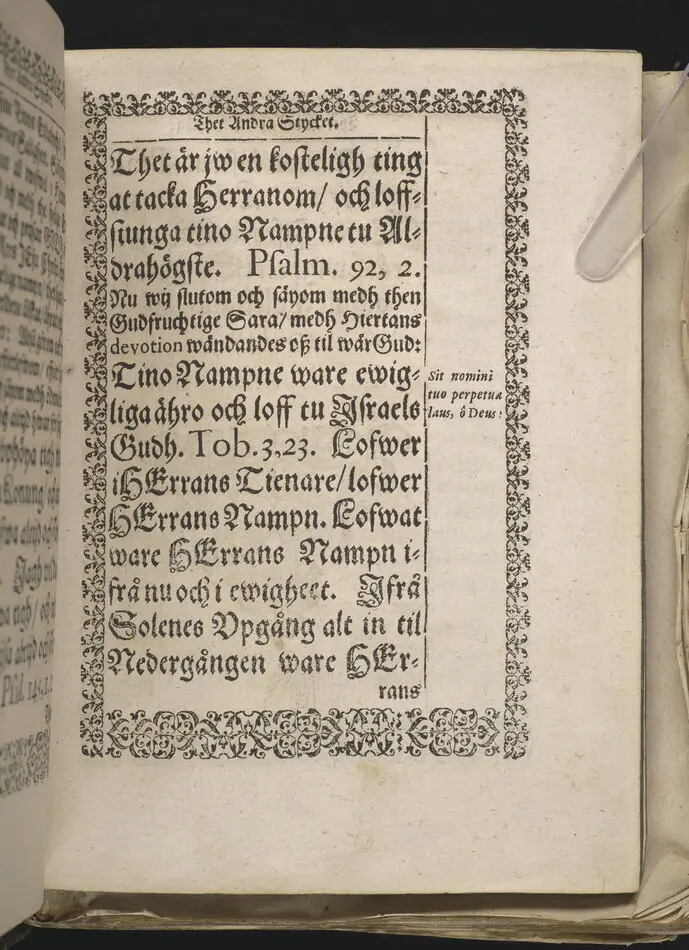 Thet Andra Stycket.
Thet är jw en kosteligh ting
at tacka Herranom/ och loff-
siunga tino Nampne tu Al-
drahögste. Psalm. 92, 2.
Nu wij slutom och säyom medh then
Gudfruchtige Sara/ medh Hiertans
devotion wändandes oß til wår Gud:
Tino Nampne ware ewig-
liga ähro och loff tu Jsraels
Gudh. Tob. 3,23. Lofwer
i HErrans Tienare/ lofwer
HErrans Nampn. Lofwat
ware HErrans Nampn i-
frå nu och i ewigheet. Jfrå
Solenes Vpgång alt in til
Nedergången ware HEr-
rans
Sit nomini
tuo perpetua
laus, ô Deus!